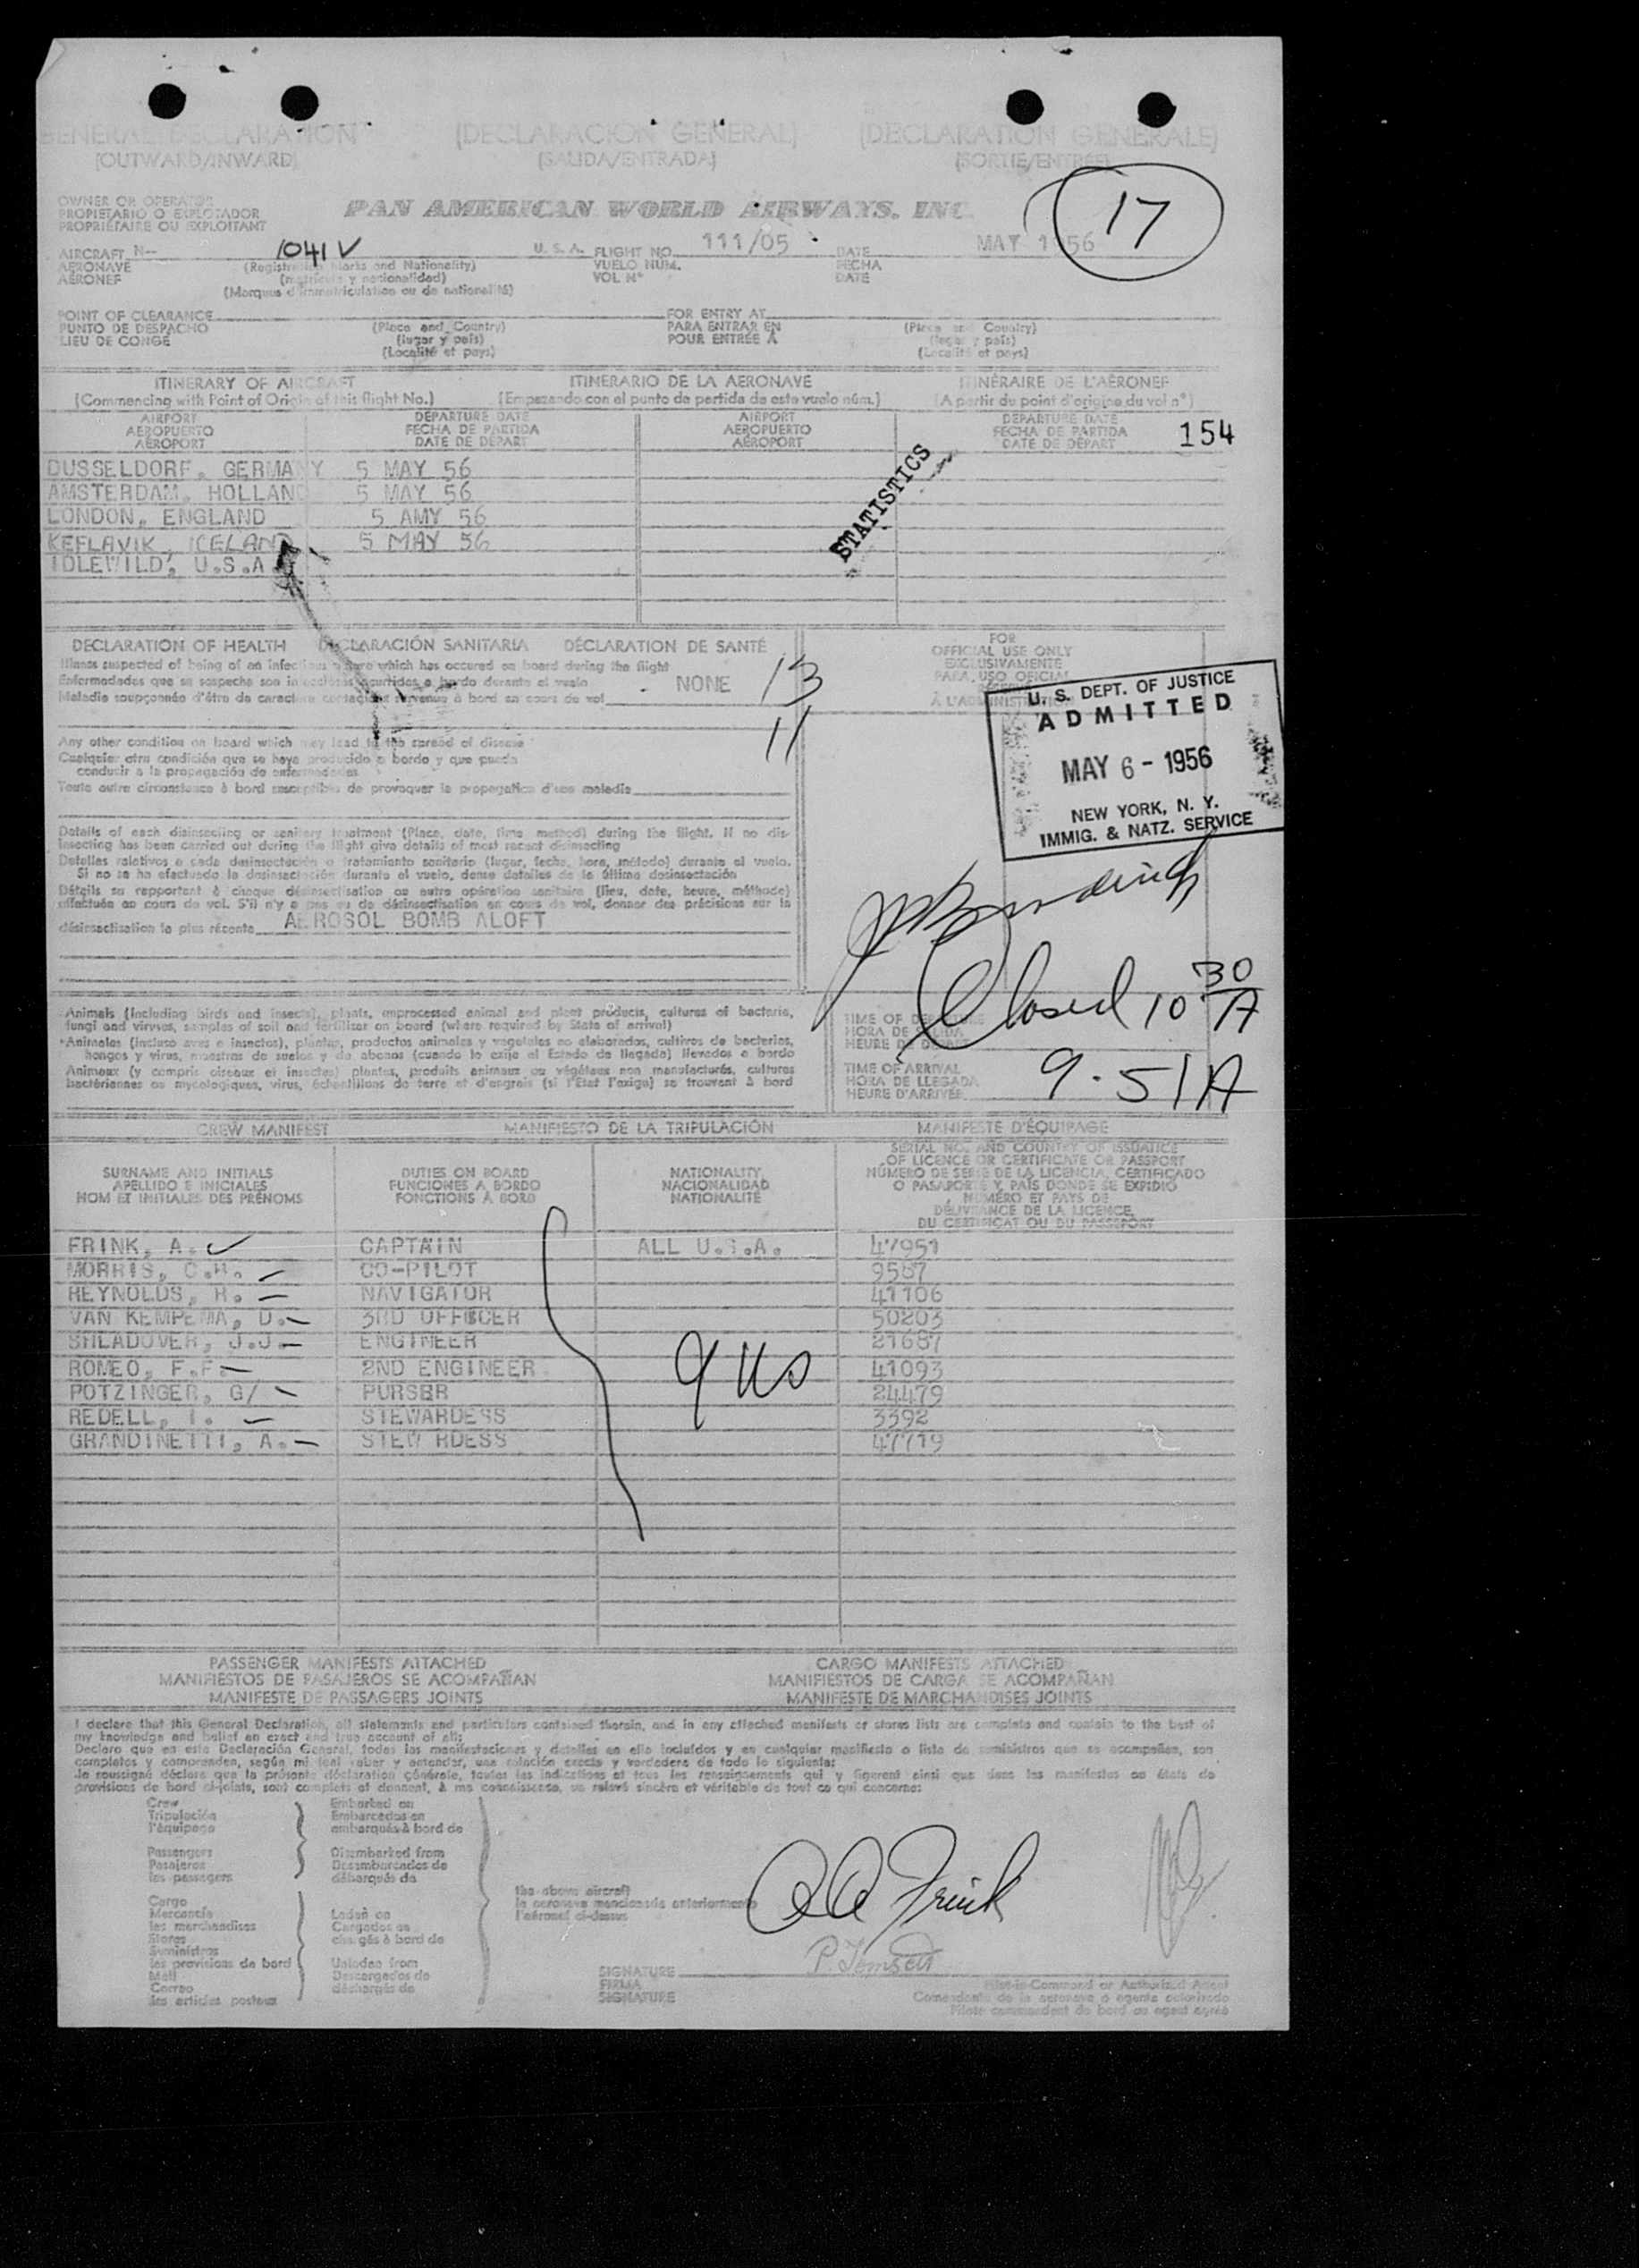 GENERAL DECLARATION [DECLARACION GENERAL] [DECLARATION GENERALE]
[OUTWARD/INWARD] (SALIDA/ENTRADA) (SORTIE/ENTRÉE)
17
OWNER OR OPERATOR
PROPIETARIO O EXPLOTADOR
PROPRIÉTAIRE OU EXPLOITANT
PAN AMERICAN WORLD AIRWAYS, INC.
AIRCRAFT N-- 1041V U. S. A. FLIGHT NO. 111/05 DATE MAY 1956
AERONAVE (Registration Marks and Nationality) VUELO NÚM. FECHA
AÉRONEF (matrícula y nacionalidad) VOL Nº DATE
(Marques d'immatriculation ou de nationalité)
POINT OF CLEARANCE FOR ENTRY AT
PUNTO DE DESPACHO (Place and Country) PARA ENTRAR EN (Place and Country)
LIEU DE CONGÉ (lugar y país) POUR ENTRÉE À (lugar y país)
(Localité et pays) (Localité et pays)
ITINERARY OF AIRCRAFT ITINERARIO DE LA AERONAVE ITINÉRAIRE DE L'AÉRONEF
(Commencing with Point of Origin of this flight No.) (Empezando con el punto de partida de este vuelo núm.) (A partir du point d'origine du vol nº)
AIRPORT DEPARTURE DATE AIRPORT DEPARTURE DATE
AEROPUERTO FECHA DE PARTIDA AEROPUERTO FECHA DE PARTIDA
AÉROPORT DATE DE DÉPART AÉROPORT DATE DE DÉPART
154
DUSSELDORF, GERMANY 5 MAY 56
AMSTERDAM, HOLLAND 5 MAY 56
LONDON, ENGLAND 5 AMY 56
KEFLAVIK, ICELAND 5 MAY 56
IDLEWILD, U.S.A
STATISTICS
DECLARATION OF HEALTH DECLARACIÓN SANITARIA DÉCLARATION DE SANTÉ
Illness suspected of being of an infectious nature which has occured on board during the flight
Enfermedades que se sospecha son infecciosas ocurridas a bordo durante el vuelo
Maladie soupçonnée d'être de caractère contagieux survenue à bord au cours de vol NONE
13
11
Any other condition on board which may lead to the spread of disease
Cualquier otra condición que se haya producido a bordo y que pueda
conducir a la propagación de enfermedades
Toute autre circonstance à bord susceptible de provoquer la propagation d'une maladie
Details of each disinsecting or sanitary treatment (Place, date, time, method) during the flight. If no dis-
insecting has been carried out during the flight give details of most recent disinsecting
Detalles relativos a cada desinsectación o tratamiento sanitario (lugar, fecha, hora, método) durante el vuelo.
Si no se ha efectuado la desinsectación durante el vuelo, dense detalles de la última desinsectación
Détails se rapportant à chaque désinsectisation ou autre opération sanitaire (lieu, date, heure, méthode)
effectuée au cours de vol. S'il n'y a pas eu de désinsectisation en cours de vol, donner des précisions sur la
désinsectisation la plus récente AEROSOL BOMB ALOFT
FOR
OFFICIAL USE ONLY
EXCLUSIVAMENTE
PARA USO OFICIAL
U. S. DEPT. OF JUSTICE
ADMITTED
MAY 6 - 1956
NEW YORK, N. Y.
IMMIG. & NATZ. SERVICE
Closed 10 30 A
Animals (including birds and insects), plants, unprocessed animal and plant products, cultures of bacteria,
fungi and viruses, samples of soil and fertilizer on board (where required by State of arrival)
Animales (incluso aves e insectos), plantas, productos animales y vegetales no elaborados, cultivos de bacterias,
hongos y virus, muestras de suelos y de abonos (cuando lo exije el Estado de llegada) llevados a bordo
Animaux (y compris oiseaux et insectes) plantes, produits animaux ou végétaux non manufacturés, cultures
bactériennes ou mycologiques, virus, échantillons de terre et d'engrais (si l'Etat l'exige) se trouvant à bord
TIME OF DEPARTURE
HORA DE SALIDA
HEURE DE DÉPART
TIME OF ARRIVAL
HORA DE LLEGADA
HEURE D'ARRIVÉE 9.51A
CREW MANIFEST MANIFIESTO DE LA TRIPULACIÓN MANIFESTE D'ÉQUIPAGE
SURNAME AND INITIALS
APELLIDO E INICIALES
NOM ET INITIALES DES PRÉNOMS
DUTIES ON BOARD
FUNCIONES A BORDO
FONCTIONS À BORD
NATIONALITY
NACIONALIDAD
NATIONALITÉ
SERIAL NO. AND COUNTRY OF ISSUANCE
OF LICENCE OR CERTIFICATE OR PASSPORT
NÚMERO DE SERIE DE LA LICENCIA, CERTIFICADO
O PASAPORTE Y PAÍS DONDE SE EXPIDIÓ
NUMÉRO ET PAYS DE
DÉLIVRANCE DE LA LICENCE,
DU CERTIFICAT OU DU PASSEPORT
FRINK, A. CAPTAIN ALL U.S.A. 47951
MORRIS, C.H. CO-PILOT 9567
REYNOLDS, R. NAVIGATOR 41106
VAN KEMPEMA, D. 3RD OFFICER 50203
SHLADOVER, J.J. ENGINEER 21687
ROMEO, F.F. 2ND ENGINEER 41093
POTZINGER, G/ PURSER 24479
REDELL, I. STEWARDESS 3392
GRANDINETTI, A. STEW RDESS 47719
9 US
PASSENGER MANIFESTS ATTACHED CARGO MANIFESTS ATTACHED
MANIFIESTOS DE PASAJEROS SE ACOMPAÑAN MANIFIESTOS DE CARGA SE ACOMPAÑAN
MANIFESTE DE PASSAGERS JOINTS MANIFESTE DE MARCHANDISES JOINTS
I declare that this General Declaration, all statements and particulars contained therein, and in any attached manifests or stores lists are complete and contain to the best of
my knowledge and belief an exact and true account of all:
Declaro que en esta Declaración General, todas las manifestaciones y detalles en ella incluidos y en cualquier manifiesto o lista de suministros que se acompañen, son
completos y comprenden, según mi leal saber y entender, una relación exacta y verdadera de todo lo siguiente:
Je soussigné déclare que la présente déclaration générale, toutes les indications et tous les renseignements qui y figurent ainsi que dans les manifestes ou états de
provisions de bord ci-joints, sont complets et donnent, à ma connaissance, un relevé sincère et véritable de tout ce qui concerne:
Crew Embarked on
Tripulación Embarcados en
l'équipage embarqués à bord de
Passengers Disembarked from
Pasajeros Desembarcados de
les passagers débarqués de
Cargo
Mercancía Laden on
les marchandises Cargados en
Stores chargés à bord de
Suministros
les provisions de bord Unladen from
Mail Descargados de
Correo déchargés de
les articles postaux
the above aircraft
la aeronave mencionada anteriormente
l'aéronef ci-dessus
A A Frink
SIGNATURE
FIRMA
SIGNATURE
Pilot-in-Command or Authorized Agent
Comandante de la aeronave o agente autorizado
Pilote commandant de bord ou agent agréé